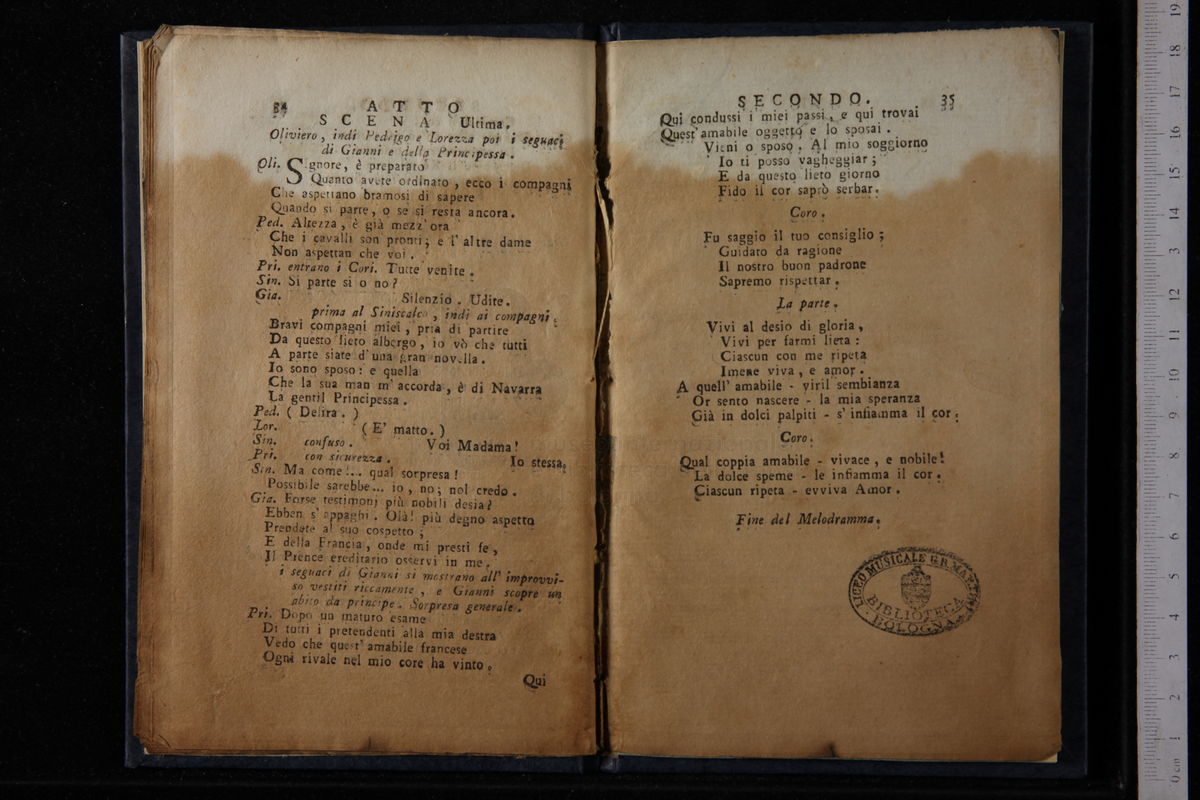 34 ATTO
SCENA Ultima.
Oliviero, indi Pedrigo e Lorezza poi i seguaci
di Gianni e della Principessa.
Oli. Signore, è preparato
Quanto avete ordinato, ecco i compagni
Che aspettano bramosi di sapere
Quando si parte, o se si resta ancora.
Ped. Altezza, è già mezz' ora
Che i cavalli son pronti; e l' altre dame
Non aspettan che voi.
Pri. entrano i Cori. Tutte venite.
Sin. Si parte si o no?
Gia. Silenzio. Udite.
prima al Siniscalco, indi ai compagni.
Bravi compagni miei, pria di partire
Da questo lieto albergo, io vò che tutti
A parte siate d'una gran novella.
Io sono sposo: e quella
Che la sua man m' accorda, è di Navarra
La gentil Principessa.
Ped. (Delira.)
Lor. (E' matto.)
Sin. confuso. Voi Madama!
Pri. con sicurezza. Io stessa.
Sin. Ma come!... qual sorpresa!
Possibile sarebbe... io, no; nol credo.
Gia. Forse testimonj più nobili desia?
Ebben s' appaghi. Olà! più degno aspetto
Prendete al suo cospetto;
E della Francia, onde mi presti fe,
Il Prence ereditario osservi in me.
i seguaci di Gianni si mostrano all' improvvi-
so vestiti riccamente, e Gianni scopre un
abito da principe. Sorpresa generale.
Pri. Dopo un maturo esame
Di tutti i pretendenti alla mia destra
Vedo che quest' amabile francese
Ogni rivale nel mio core ha vinto.
Qui
SECONDO. 35
Qui condussi i miei passi, e qui trovai
Quest' amabile oggetto e lo sposai.
Vieni o sposo. Al mio soggiorno
Io ti posso vagheggiar;
E da questo lieto giorno
Fido il cor saprò serbar.
Coro.
Fu saggio il tuo consiglio;
Guidato da ragione
Il nostro buon padrone
Sapremo rispettar.
La parte.
Vivi al desio di gloria,
Vivi per farmi lieta:
Ciascun con me ripeta
Imene viva, e amor.
A quell' amabile - viril sembianza
Or sento nascere - la mia speranza
Già in dolci palpiti - s' infiamma il cor.
Coro.
Qual coppia amabile - vivace, e nobile!
La dolce speme - le infiamma il cor.
Ciascun ripeta - evviva Amor.
Fine del Melodramma.
LICEO MUSICALE G.B. MARTINI
BIBLIOTECA
BOLOGNA
0 cm 1 2 3 4 5 6 7 8 9 10 11 12 13 14 15 16 17 18 19